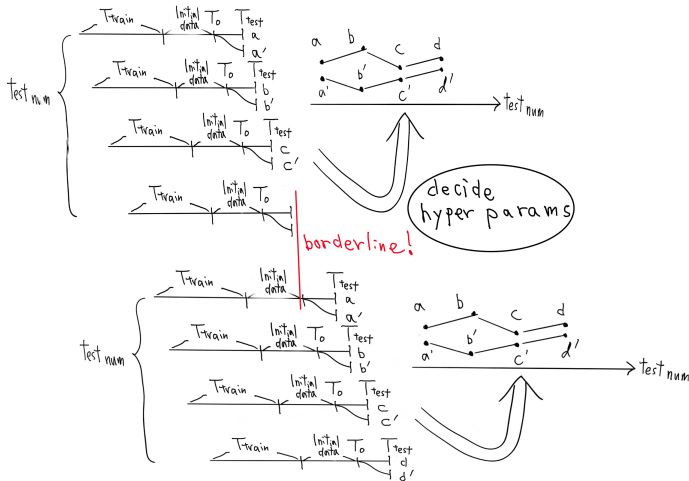 Ttrain Initial data T0 Ttest
a
a'
Ttrain Initial data T0 Ttest
b
b'
Ttrain Initial data T0 Ttest
c
c'
Ttrain Initial data T0
test num
a b c d
a' b' c' d'
test num
decide
hyper params
borderline!
Ttrain Initial data Ttest
a
a'
Ttrain Initial data T0 Ttest
b
b'
Ttrain Initial data T0 Ttest
c
c'
Ttrain Initial data T0 Ttest
d
d'
test num
a b c d
a' b' c' d'
test num